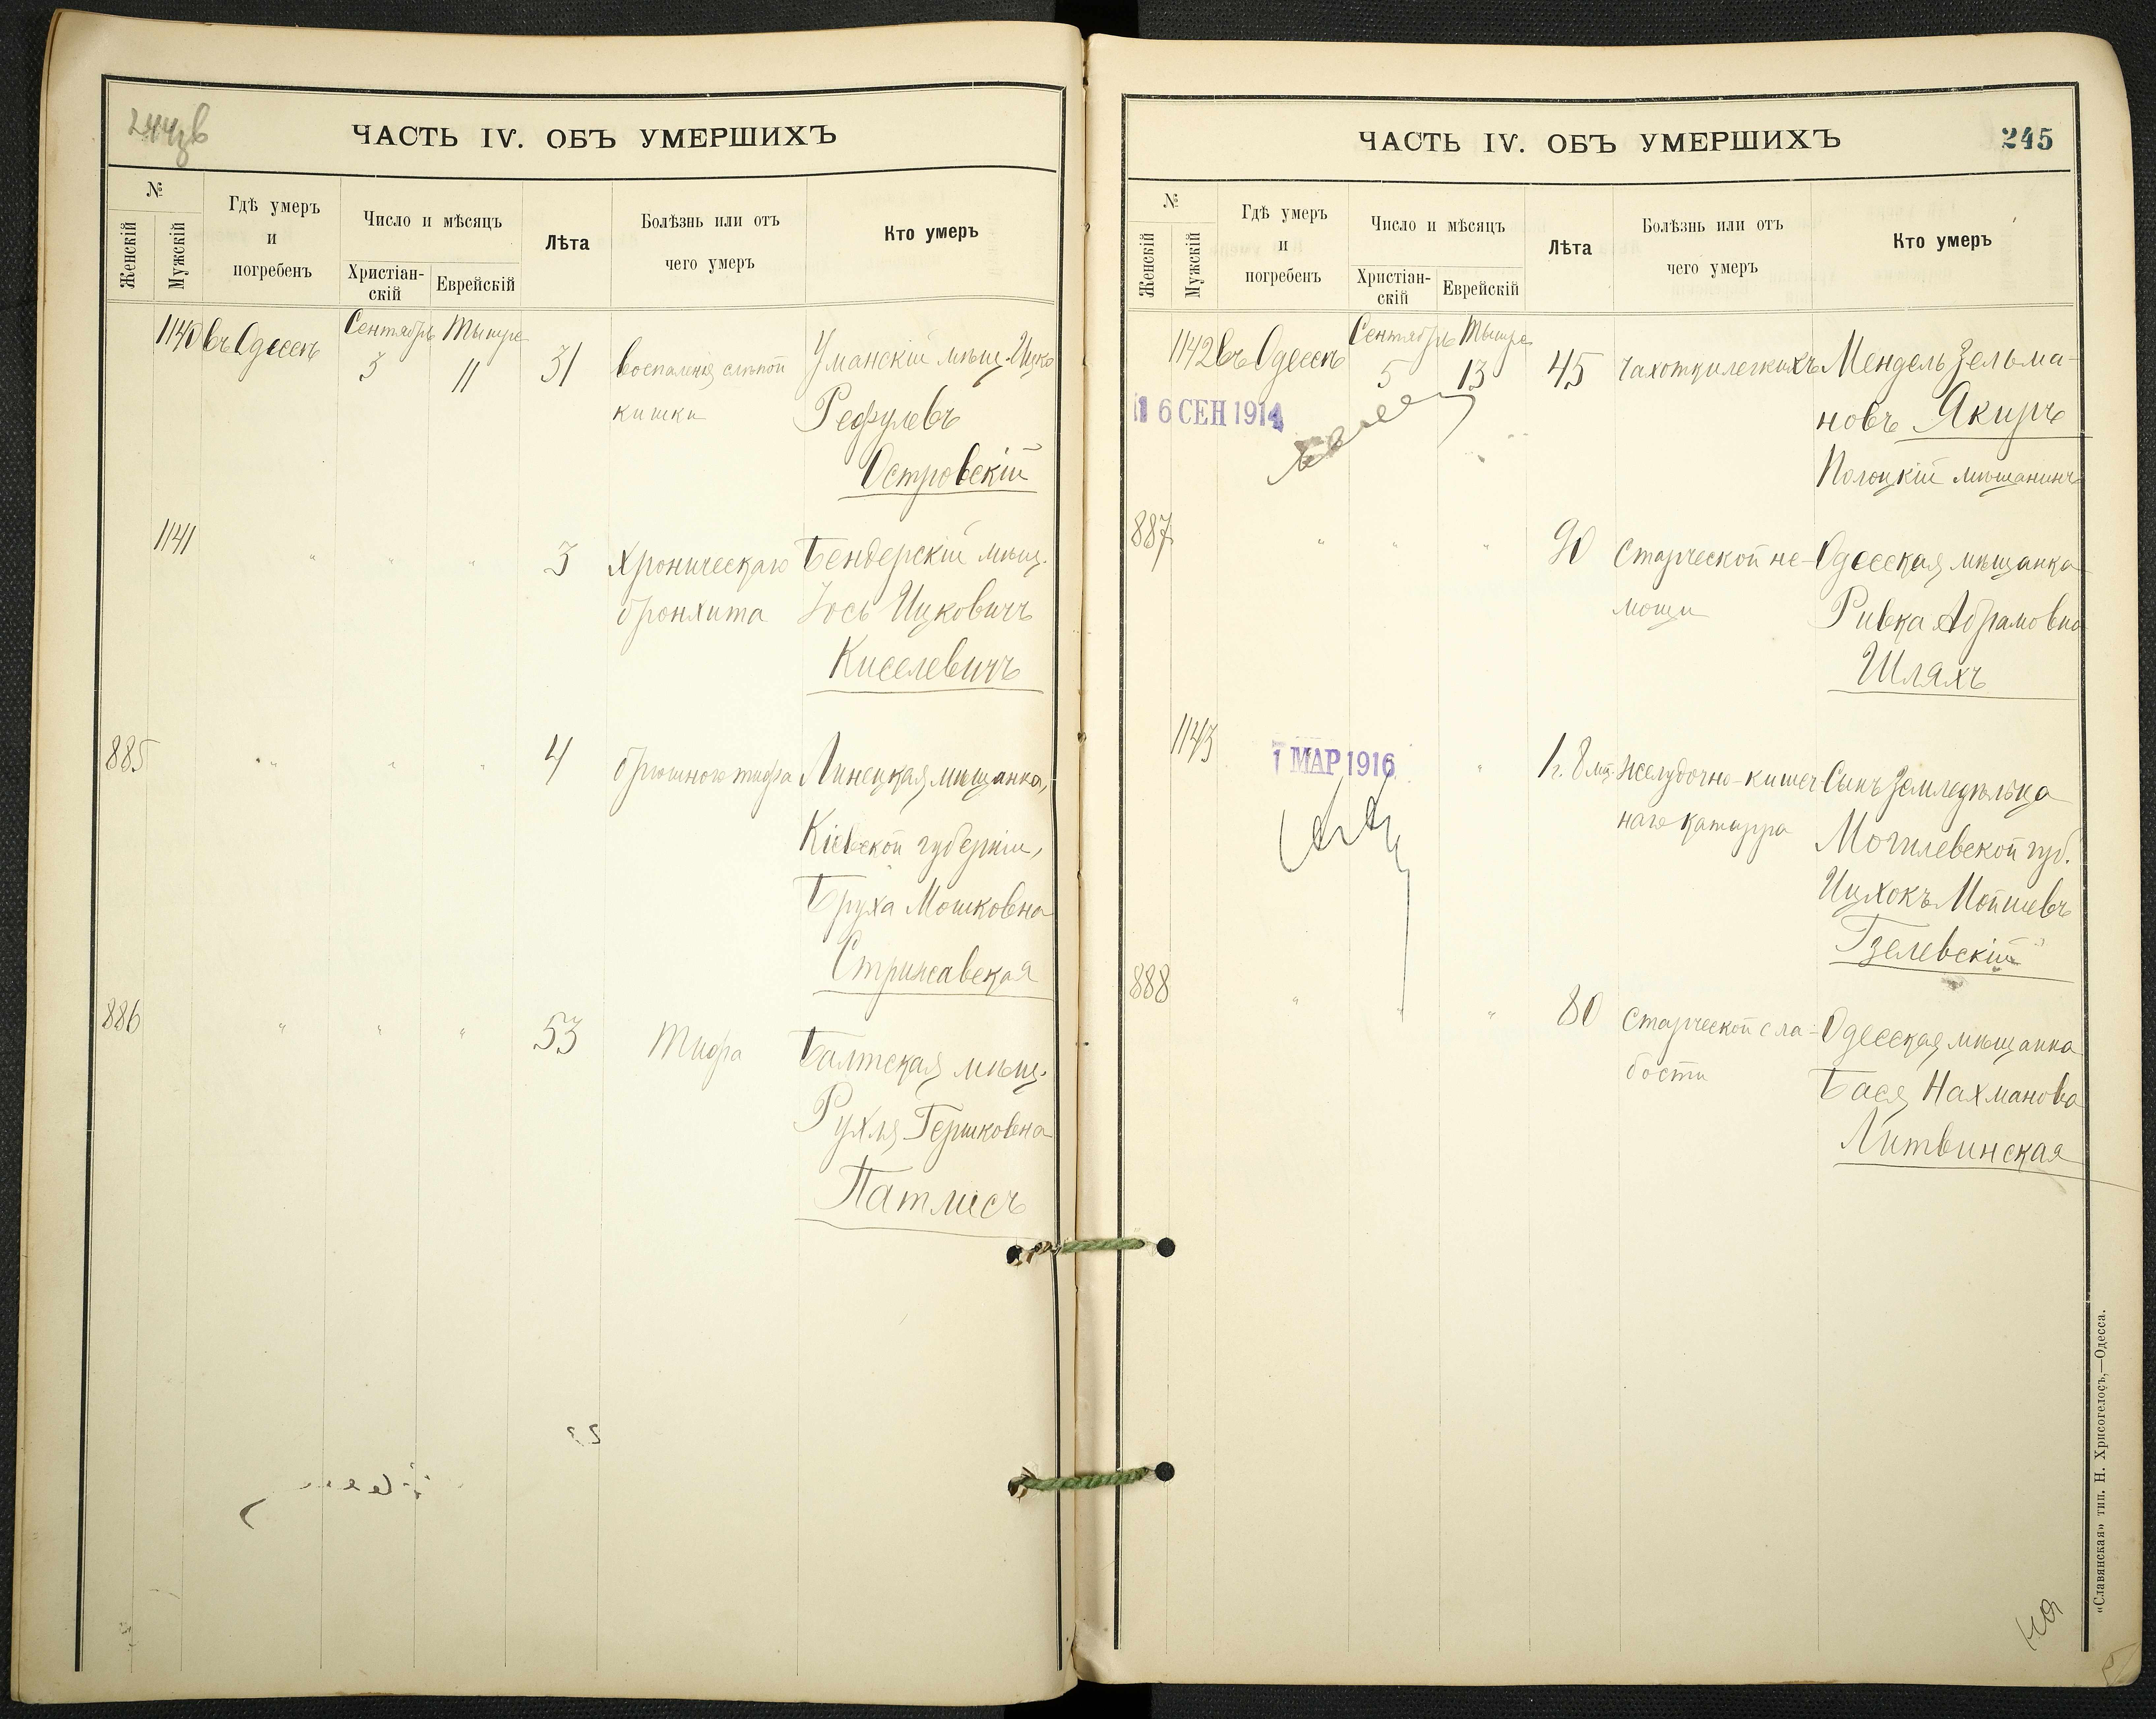 244 об
ЧАСТЬ IV. ОБЪ УМЕРШИХЪ
№
Женскій
Мужскій
Гдѣ умеръ
и
погребенъ
Число и мѣсяцъ
Христіан-
скій
Еврейскій
Лѣта
Болѣзнь или отъ
чего умеръ
Кто умеръ
1140 въ Одессѣ Сентябрь 3 Тышре 11 31 воспаленія слѣпой Уманскій мѣщ. Ицко
кишки Рефулевъ
Островскій
1141 " " " 3 хроническаго Бендерскій мѣщ.
бронхита Іось Ицковичъ
Киселевичъ
885 " " " 4 брюшного тифа Линецкая мѣщанка,
Кіевской губерніи,
Бруха Мошковна
Стрижавская
886 " " " 53 Тифа Балтская мѣщ.
Рухля Гершковна
Патлисъ
ЧАСТЬ IV. ОБЪ УМЕРШИХЪ
245
№
Женскій
Мужскій
Гдѣ умеръ
и
погребенъ
Число и мѣсяцъ
Христіан-
скій
Еврейскій
Лѣта
Болѣзнь или отъ
чего умеръ
Кто умеръ
1142 въ Одессѣ Сентябрь 5 Тышре 13 45 Чахотки легкихъ Мендель Зельма-
новъ Якиръ
16 СЕН 1914
Полоцкій мѣщанинъ
887 " " " 90 Старческой не- Одесская мѣщанка
мощи Ривка Абрамовна
Шляхъ
1143 1 МАР 1916 " 1 г. 8 мѣ. желудочно-кишеч- Сынъ земледѣльца
наго катарра Могилевской губ.
Ицхокъ Мойшевъ
Гзелевскій
888 " " " 80 Старческой сла- Одесская мѣщанка
бости Бася Нахманова
Литвинская
«Славянская» тип. Н. Хрисогелосъ,—Одесса.